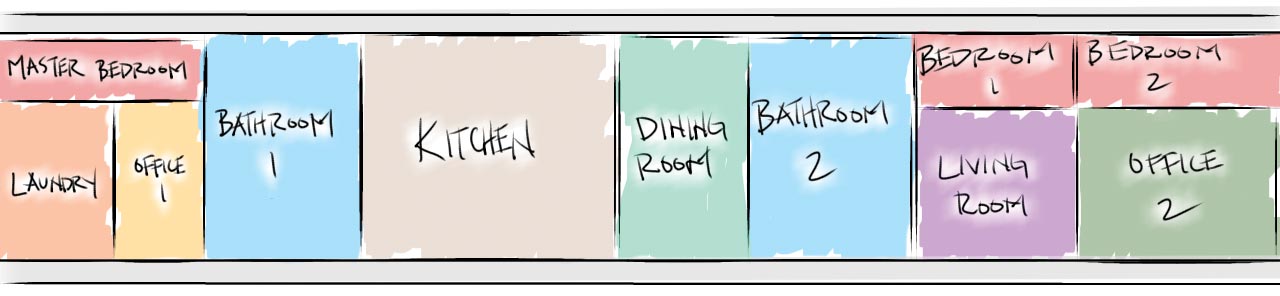 MASTER BEDROOM
LAUNDRY
OFFICE
1
BATHROOM
1
KITCHEN
DINING
ROOM
BATHROOM
2
BEDROOM
1
LIVING
ROOM
BEDROOM
2
OFFICE
2